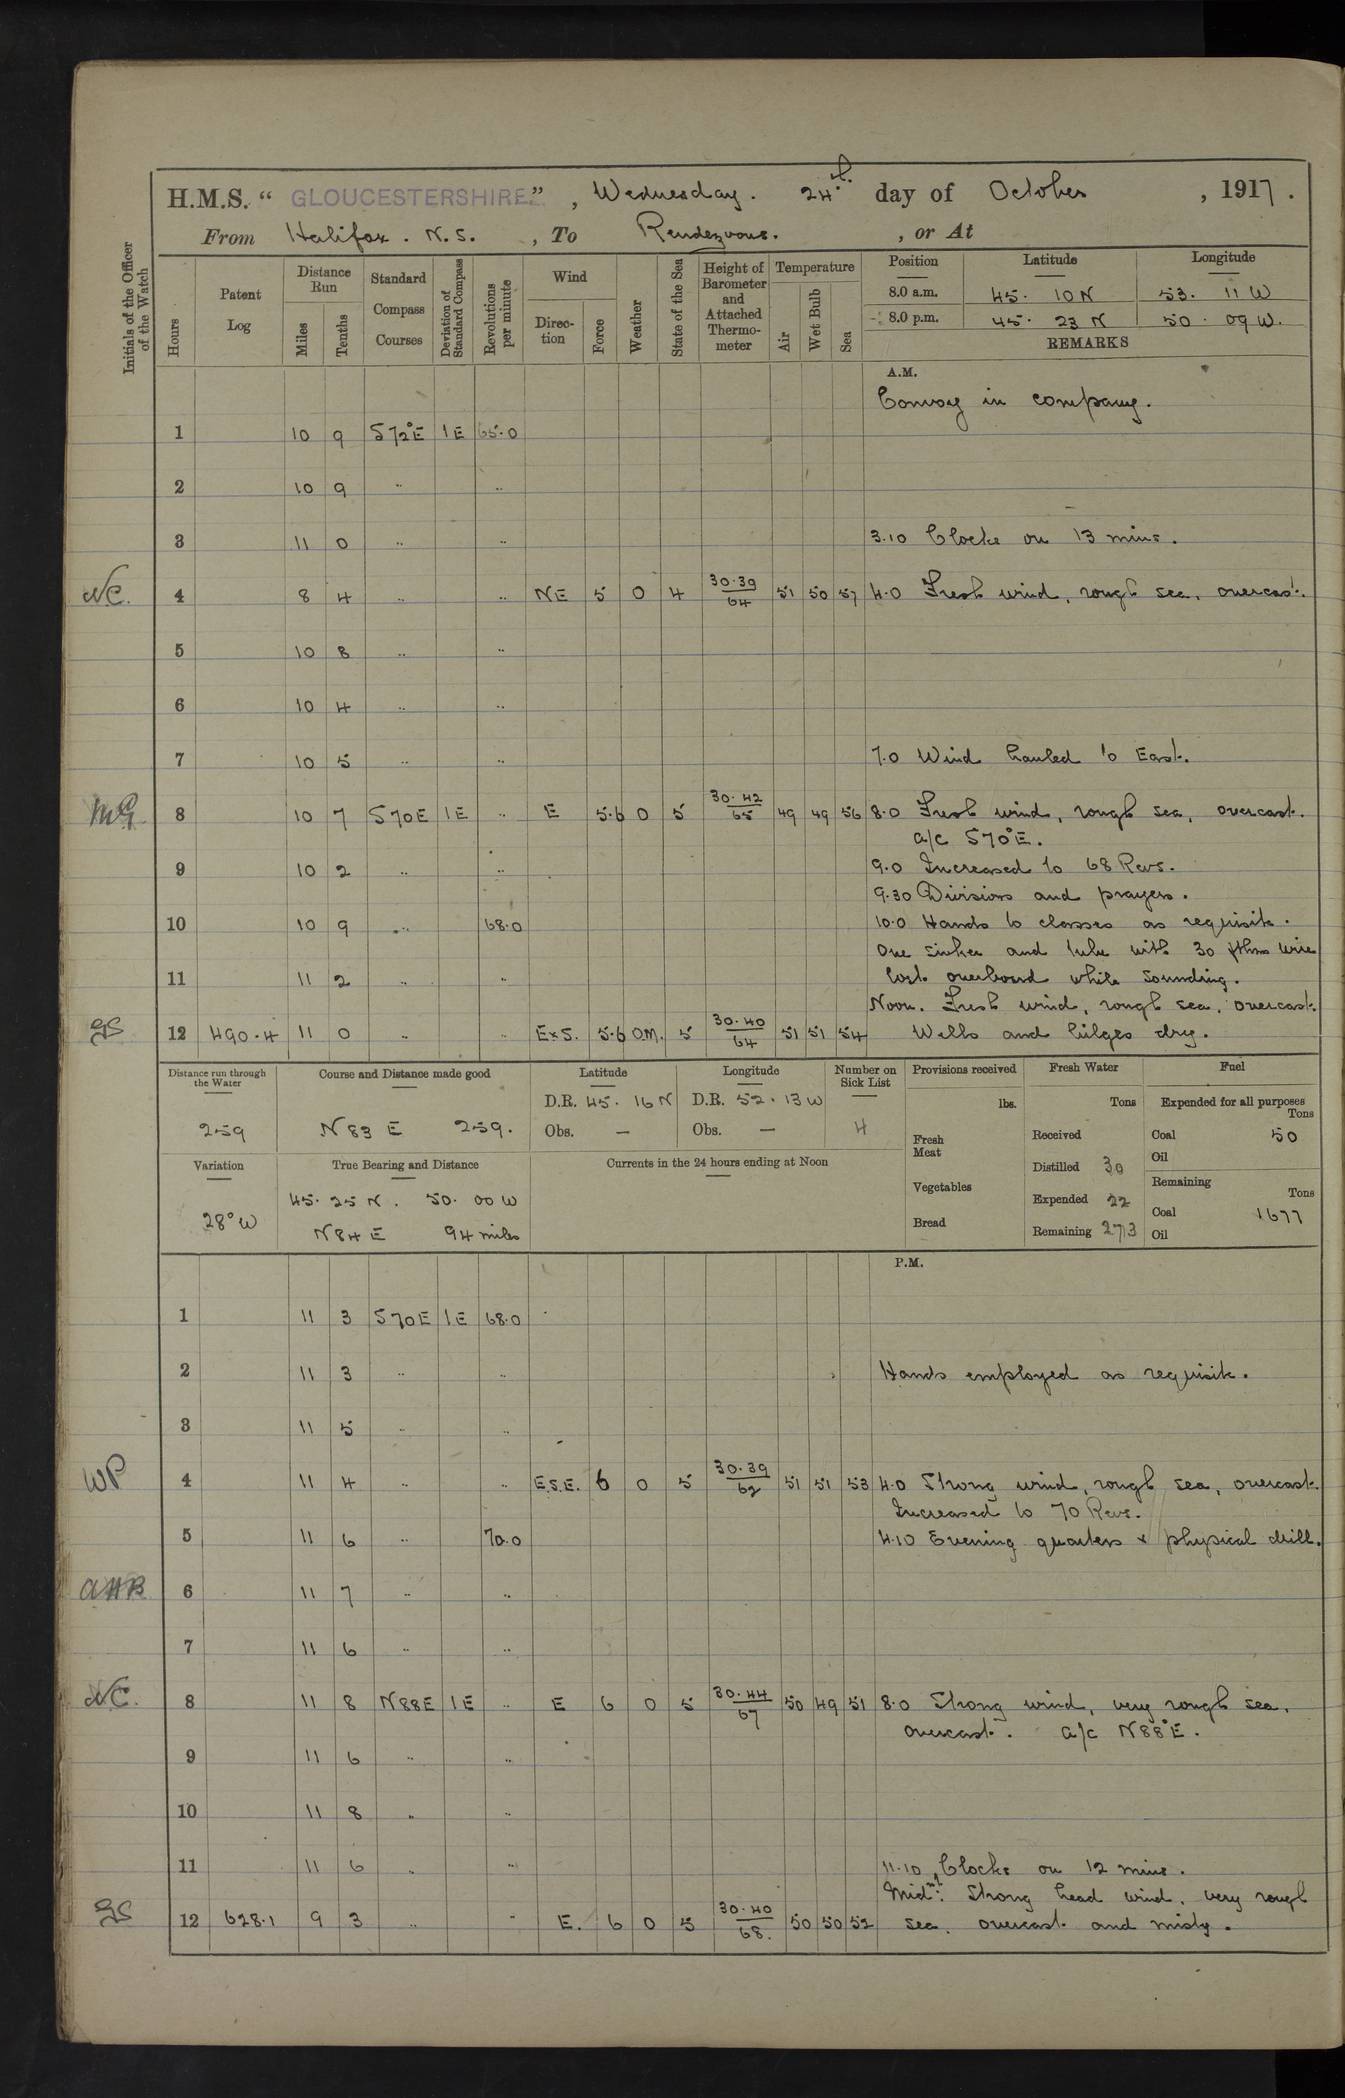 H.M.S. “ GLOUCESTERSHIRE.” , Wednesday. 24th day of October , 1917.
From Halifax. N.S. , To Rendezvous. , or At
Initials of the Officer of the Watch
Hours
Patent Log
Distance Run
Miles
Tenths
Standard Compass Courses
Deviation of Standard Compass
Revolutions per minute
Wind
Direction
Force
Weather
State of the Sea
Height of Barometer and Attached Thermometer
Temperature
Air
Wet Bulb
Sea
Position Latitude Longitude
8.0 a.m. 45. 10 N 53. 11 W
8.0 p.m. 45. 23 N 50. 09 W.
REMARKS
A.M.
Convoy in company.
1 10 9 S 72° E 1 E 65.0
2 10 9 .. ..
3 11 0 .. .. 3.10 Clocks on 13 mins.
NC. 4 8 4 .. .. NE 5 O 4 30.39/64 51 50 57 4.0 Fresh wind, rough sea, overcast.
5 10 8 .. ..
6 10 4 .. ..
7 10 5 .. .. 7.0 Wind hauled to East.
8 10 7 S 70 E 1 E .. E 5.6 O 5 30.42/65 49 49 56 8.0 Fresh wind, rough sea, overcast.
a/c S 70° E.
9 10 2 .. .. 9.0 Increased to 68 Revs.
9.30 Divisions and prayers.
10 10 9 .. 68.0 10.0 Hands to classes as requisite.
One sinker and tube with 30 fthms wire
11 11 2 .. .. lost overboard while sounding.
Noon. Fresh wind, rough sea, overcast.
GS 12 490.4 11 0 .. .. ExS. 5.6 O.M. 5 30.40/64 51 51 54 Wells and bilges dry.
Distance run through the Water
259
Course and Distance made good
N 83 E 259.
Latitude
D.R. 45. 16 N
Obs. —
Longitude
D.R. 52. 13 W
Obs. —
Number on Sick List
4
Variation
28° W
True Bearing and Distance
45. 25 N. 50. 00 W
N 84 E 94 miles
Currents in the 24 hours ending at Noon
Provisions received
lbs.
Fresh Meat
Vegetables
Bread
Fresh Water
Tons
Received
Distilled 30
Expended 22
Remaining 273
Fuel
Expended for all purposes
Tons
Coal 50
Oil
Remaining
Tons
Coal 1677
Oil
P.M.
1 11 3 S 70 E 1 E 68.0
2 11 3 .. .. Hands employed as requisite.
3 11 5 .. ..
WP 4 11 4 .. .. E.S.E. 6 O 5 30.39/62 51 51 53 4.0 Strong wind, rough sea, overcast.
Increased to 70 Revs.
5 11 6 .. 70.0 4.10 Evening quarters & physical drill.
AHB 6 11 7 .. ..
7 11 6 .. ..
NC. 8 11 8 N 88 E 1 E .. E 6 O 5 30.44/67 50 49 51 8.0 Strong wind, very rough sea,
overcast. a/c N 88° E.
9 11 6 .. ..
10 11 8 .. ..
11 11 6 .. .. 11.10 Clocks on 12 mins.
Midnt. Strong head wind, very rough
GS 12 628.1 9 3 .. .. E. 6 O 5 30.40/68. 50 50 52 sea, overcast and misty.